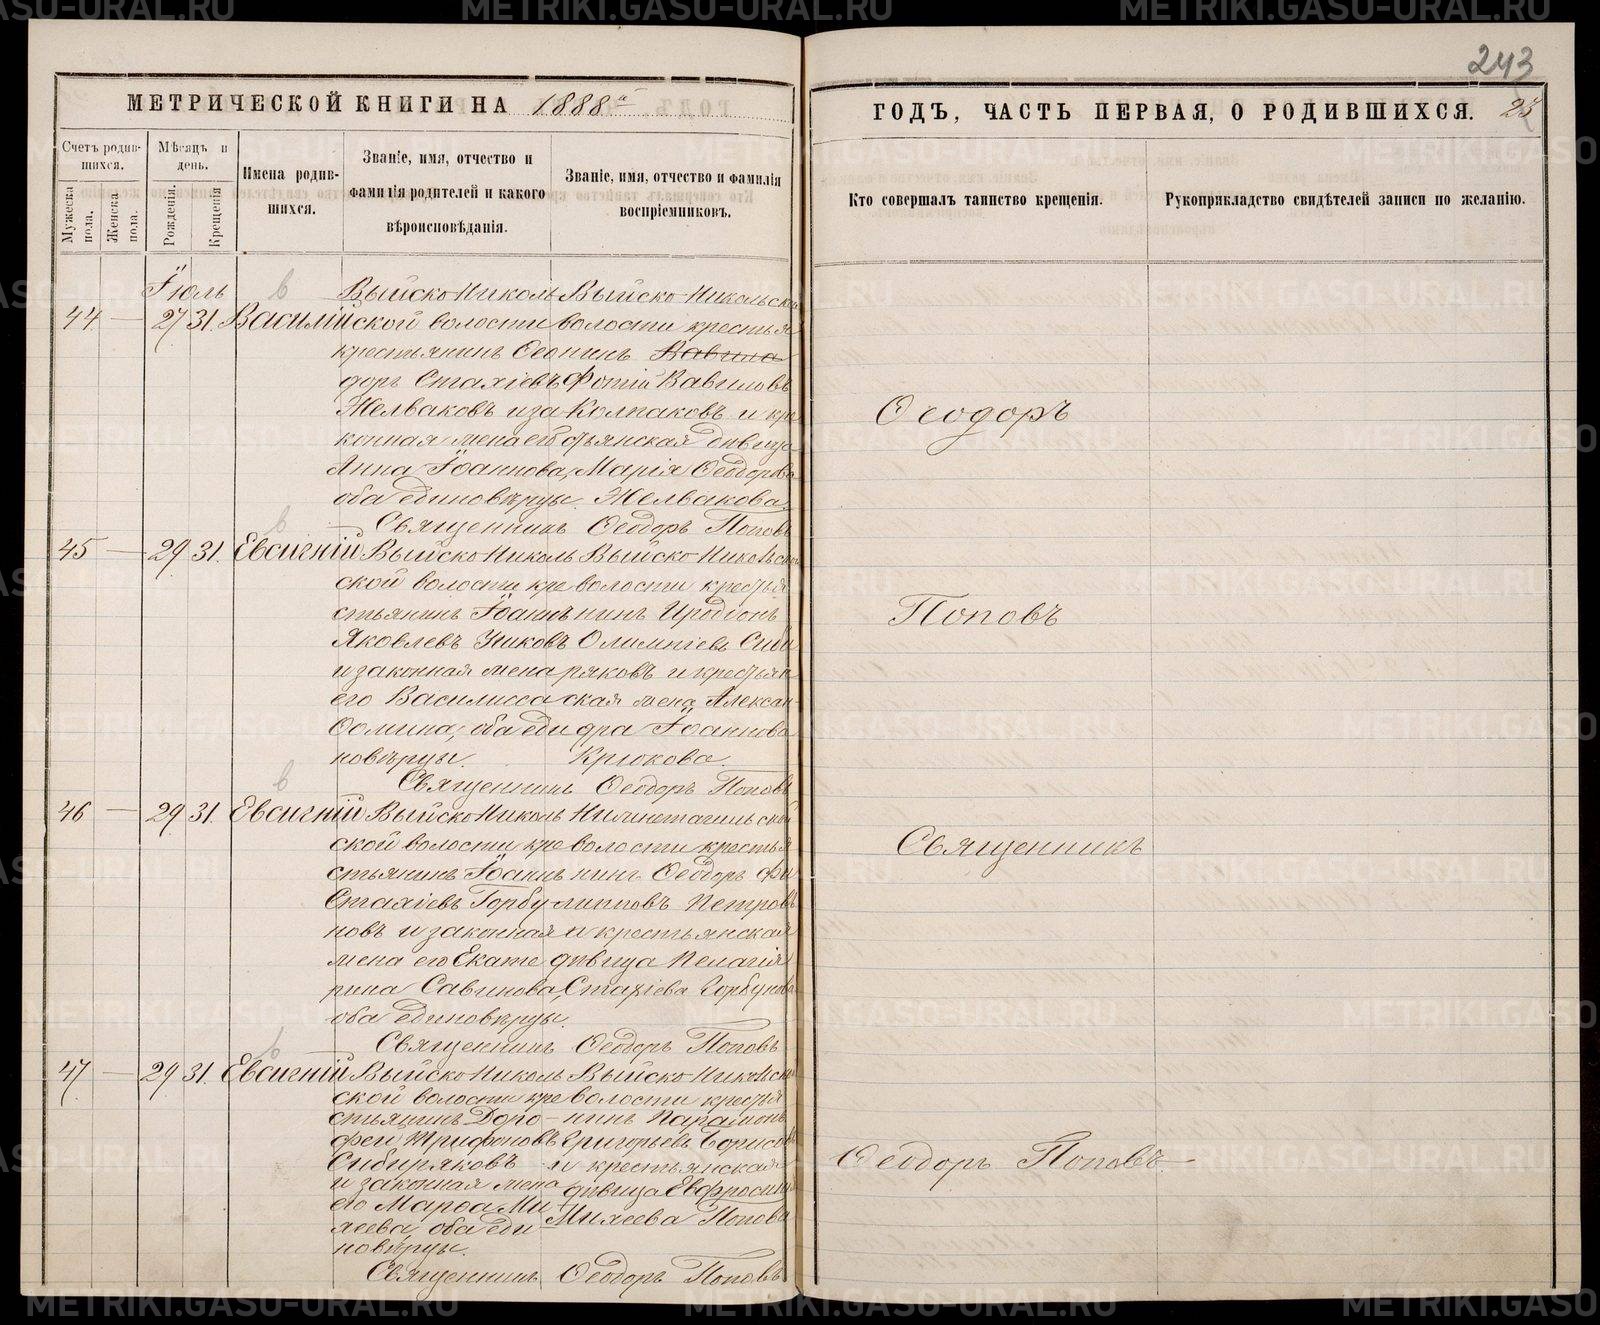 243
МЕТРИЧЕСКОЙ КНИГИ НА 1888й
ГОДЪ, ЧАСТЬ ПЕРВАЯ, О РОДИВШИХСЯ. 25
Счетъ родившихся.
Мужеска пола.
Женска пола.
Мѣсяцъ и день.
Рожденія.
Крещенія
Имена родившихся.
Званіе, имя, отчество и фамилія родителей и какого вѣроисповѣданія.
Званіе, имя, отчество и фамилія воспріемниковъ.
Кто совершалъ таинство крещенія.
Рукоприкладство свидѣтелей записи по желанію.
Іюль
44 — 27 31. Василій
Выйско Николь
ской волости
крестьянинъ Ѳео
доръ Стахіевъ
Желваковъ и за
конная жена его
Анна Іоаннова,
оба единовѣрцы.
Выйско-Никольской
волости крестья
нинъ Вавила
Фотій Вавиловъ
Колпаковъ и кре
стьянская дѣвица
Марія Ѳеодорова
Желвакова.
Священникъ Ѳеодоръ Поповъ
45 — 29 31. Евсигній
Выйско Николь
ской волости кре
стьянинъ Іоаннъ
Яковлевъ Уиковъ
и законная жена
его Василисса
Ѳомина, оба еди
новѣрцы.
Выйско-Никольской
волости крестья
нинъ Иродіонъ
Олимпіевъ Сиби
ряковъ и крестьян
ская жена Алексан
дра Іоаннова
Крюкова.
Священникъ Ѳеодоръ Поповъ
46 — 29 31. Евсигній
Выйско Николь
ской волости кре
стьянинъ Іоаннъ
Стахіевъ Горбу
новъ и законная
жена его Екате
рина Савинова,
оба единовѣрцы.
Нижнетагильской
волости крестья
нинъ Ѳеодоръ Фи
липповъ Петровъ
и крестьянская
дѣвица Пелагія
Стахіева Горбунова
Священникъ Ѳеодоръ Поповъ
47 — 29 31. Евсигній
Выйско Николь
ской волости кре
стьянинъ Доро
фей Трифоновъ
Сибиряковъ
и законная жена
его Марѳа Ми
хеева, оба еди
новѣрцы.
Выйско-Никольской
волости крестья
нинъ Парамонъ
Григорьевъ Борисовъ
и крестьянская
дѣвица Евфросинія
Михеева Попова
Священникъ Ѳеодоръ Поповъ
Ѳеодоръ
Поповъ
Священникъ
Ѳеодоръ Поповъ
METRIKI.GASO-URAL.RU